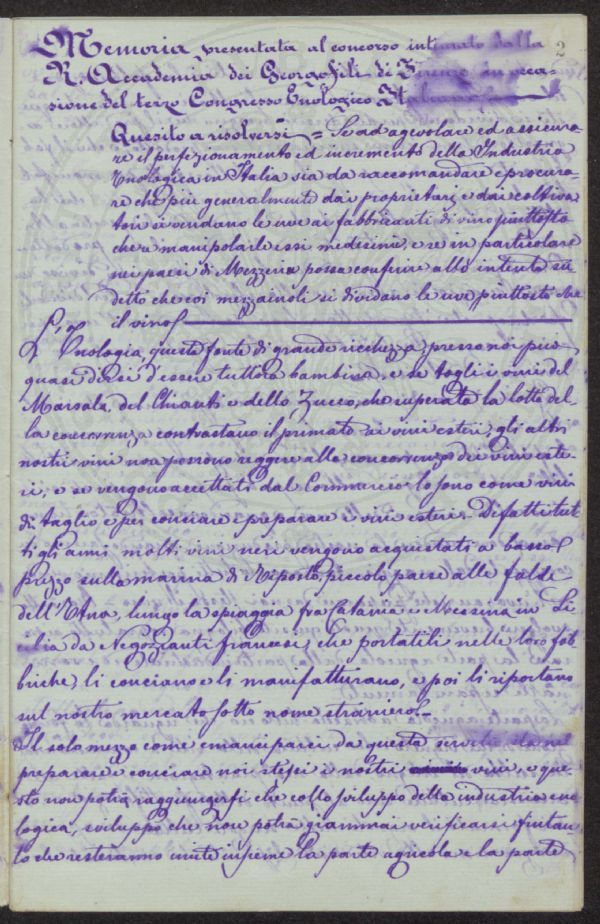 2
Memoria presentata al concorso intimato dalla
R. Accademia dei Georgofili di Firenze in occa-
sione del terzo Congresso Enologico Italiano
Quesito a risolversi = Se ad agevolare ed assicura-
re il perfezionamento ed incremento della Industria
Enologica in Italia sia da raccomandare e procura-
re che più generalmente dai proprietarj e dai coltiva-
tori si vendano le uve ai fabbricanti di vino piuttosto
che manipolarle essi medesimi, e se in particolare
nei paesi di Mezzeria possa conferire allo intento su-
detto che coi mezzaiuoli si dividano le uve piuttosto che
il vino
L'Enologia, questa fonte di grande ricchezza, presso noi può
quasi dirsi d'essere tuttora bambina, e se togli i vini del
Marsala, del Chianti e dello Zucco, che superata la lotta del-
la concorrenza contrastano il primato ai vini esteri, gli altri
nostri vini non possono reggere alla concorrenza dei vini este-
ri, e se vengono accettati dal Commercio lo sono come vini
di taglio e per conciare e preparare i vini esteri. Difatti tut-
ti gli anni molti vini neri vengono acquistati a basso
prezzo sulla marina di Riposto, piccolo paese alle falde
dell'Etna, lungo la spiaggia fra Catania e Messina in Si-
cilia da Negozianti francesi, che portatili nelle loro fab-
briche, li conciano e li manifatturano, e poi li riportano
sul nostro mercato sotto nome straniero.
Il solo mezzo come emanciparci da questa servitù sta nel
preparare e conciare noi stessi i nostri vini, e que-
sto non potrà raggiungersi che collo sviluppo della industria eno-
logica, sviluppo che non potrà giammai verificarsi fintan-
to che resteranno unite insieme la parte agricola e la parte